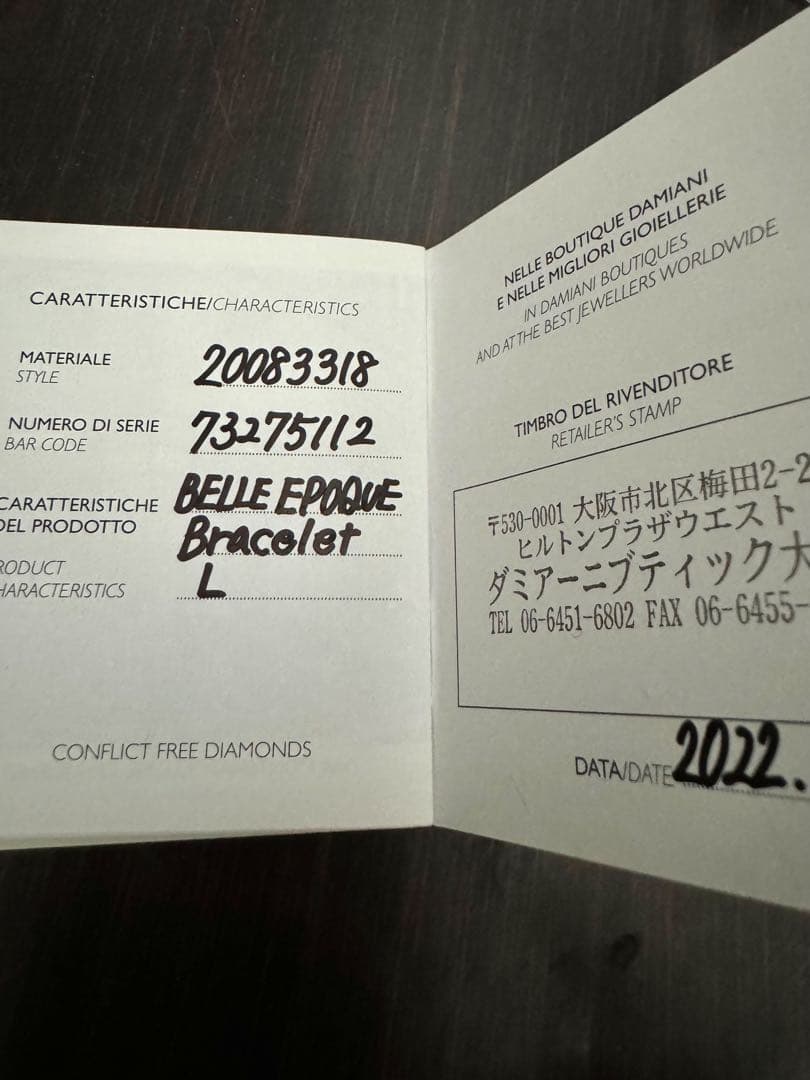 CARATTERISTICHE/CHARACTERISTICS
MATERIALE
STYLE
20083318
NUMERO DI SERIE
BAR CODE
73275112
CARATTERISTICHE
DEL PRODOTTO
PRODUCT
CHARACTERISTICS
BELLE EPOQUE
Bracelet
L
CONFLICT FREE DIAMONDS
NELLE BOUTIQUE DAMIANI
E NELLE MIGLIORI GIOIELLERIE
IN DAMIANI BOUTIQUES
AND AT THE BEST JEWELLERS WORLDWIDE
TIMBRO DEL RIVENDITORE
RETAILER'S STAMP
〒530-0001 大阪市北区梅田2-2
ヒルトンプラザウエスト
ダミアーニブティック大
TEL 06-6451-6802 FAX 06-6455-
DATA/DATE 2022.